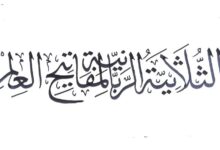 الثُّلَاثِيَّةُ الرَّبَّانِيَّةُ لِمَفَاتِيحِ العِلم